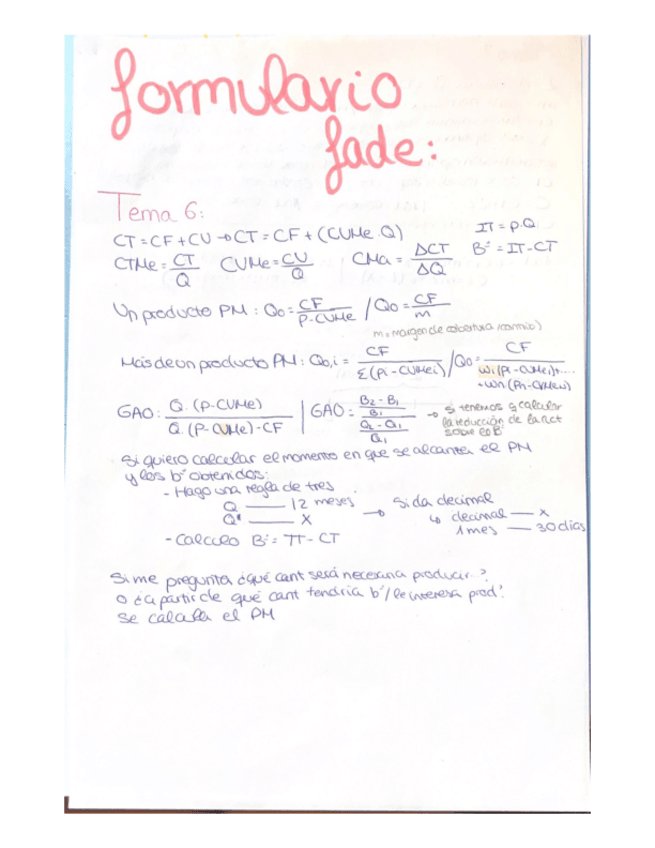 formulario
fade:
Tema 6:
CT = CF + CU → CT = CF + (CUMe.Q) IT = p.Q
CTMe = CT/Q CUMe = CU/Q CMa = ΔCT/ΔQ Bº = IT - CT
Un producto PM: Qo = CF/P-CUMe / Qo = CF/m
m = Margen de cobertura
Más de un producto PM: Qo,i = CF/Σ(Pi - CUMei) / Qo = CF/Wi(Pi - CUMei)+.... + Wn(Pn - CUMen)
GAO: Q.(P-CUMe)/Q.(P-CUMe)-CF | GAO: B2-B1/B1/Q2-Q1/Q1 → Si tenemos q calcular
la reducción de la act
sobre el Bº
Si quiero calcular el momento en que se alcanza el PM
y los bº obtenidos:
- Hago una regla de tres
Q —— 12 meses → Si da decimal
Q* —— X ↳ decimal — x
1 mes — 30 días
- Calculo Bº = IT - CT
Si me pregunta ¿qué cant será necesaria producir..?
o ¿a partir de qué cant tendría bº/le interesa prod?
se calcula el PM